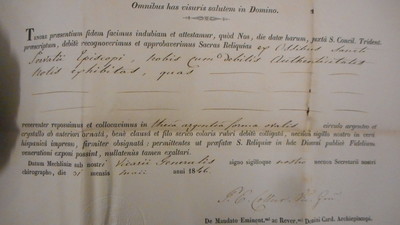 Omnibus has visuris salutem in Domino.
Tenore præsentium fidem facimus indubiam et attestamur, quòd Nos, die datæ harum, juxtà S. Concil. Trident.
præscriptum, debitè recognoverimus et approbaverimus Sacras Reliquias ex Ossibus Sancti
Episcopi, nobis cum debitis Authenticitatis
Notis exhibitas, quas
reverenter reposuimus et collocavimus in thecâ argenteâ formæ ovalis circulo argenteo et
crystallo ab anteriori ornatâ, benè clausâ et filo serico coloris rubri debitè colligatâ, necnon sigillo nostro in cerâ
hispanicâ impresso, firmiter obsignatâ: permittentes ut præfatæ S. Reliquiæ in hâc Diœcesi publicæ Fidelium
venerationi exponi possint, nullatenùs tamen exaltari.
Datum Mechliniæ sub nostri Vicarii Generalis signo sigilloque nostro necnon Secretarii nostri
chirographo, die 31 mensis anni 1846.
De Mandato Eminent. ac Rever. Domini Card. Archiepiscopi.